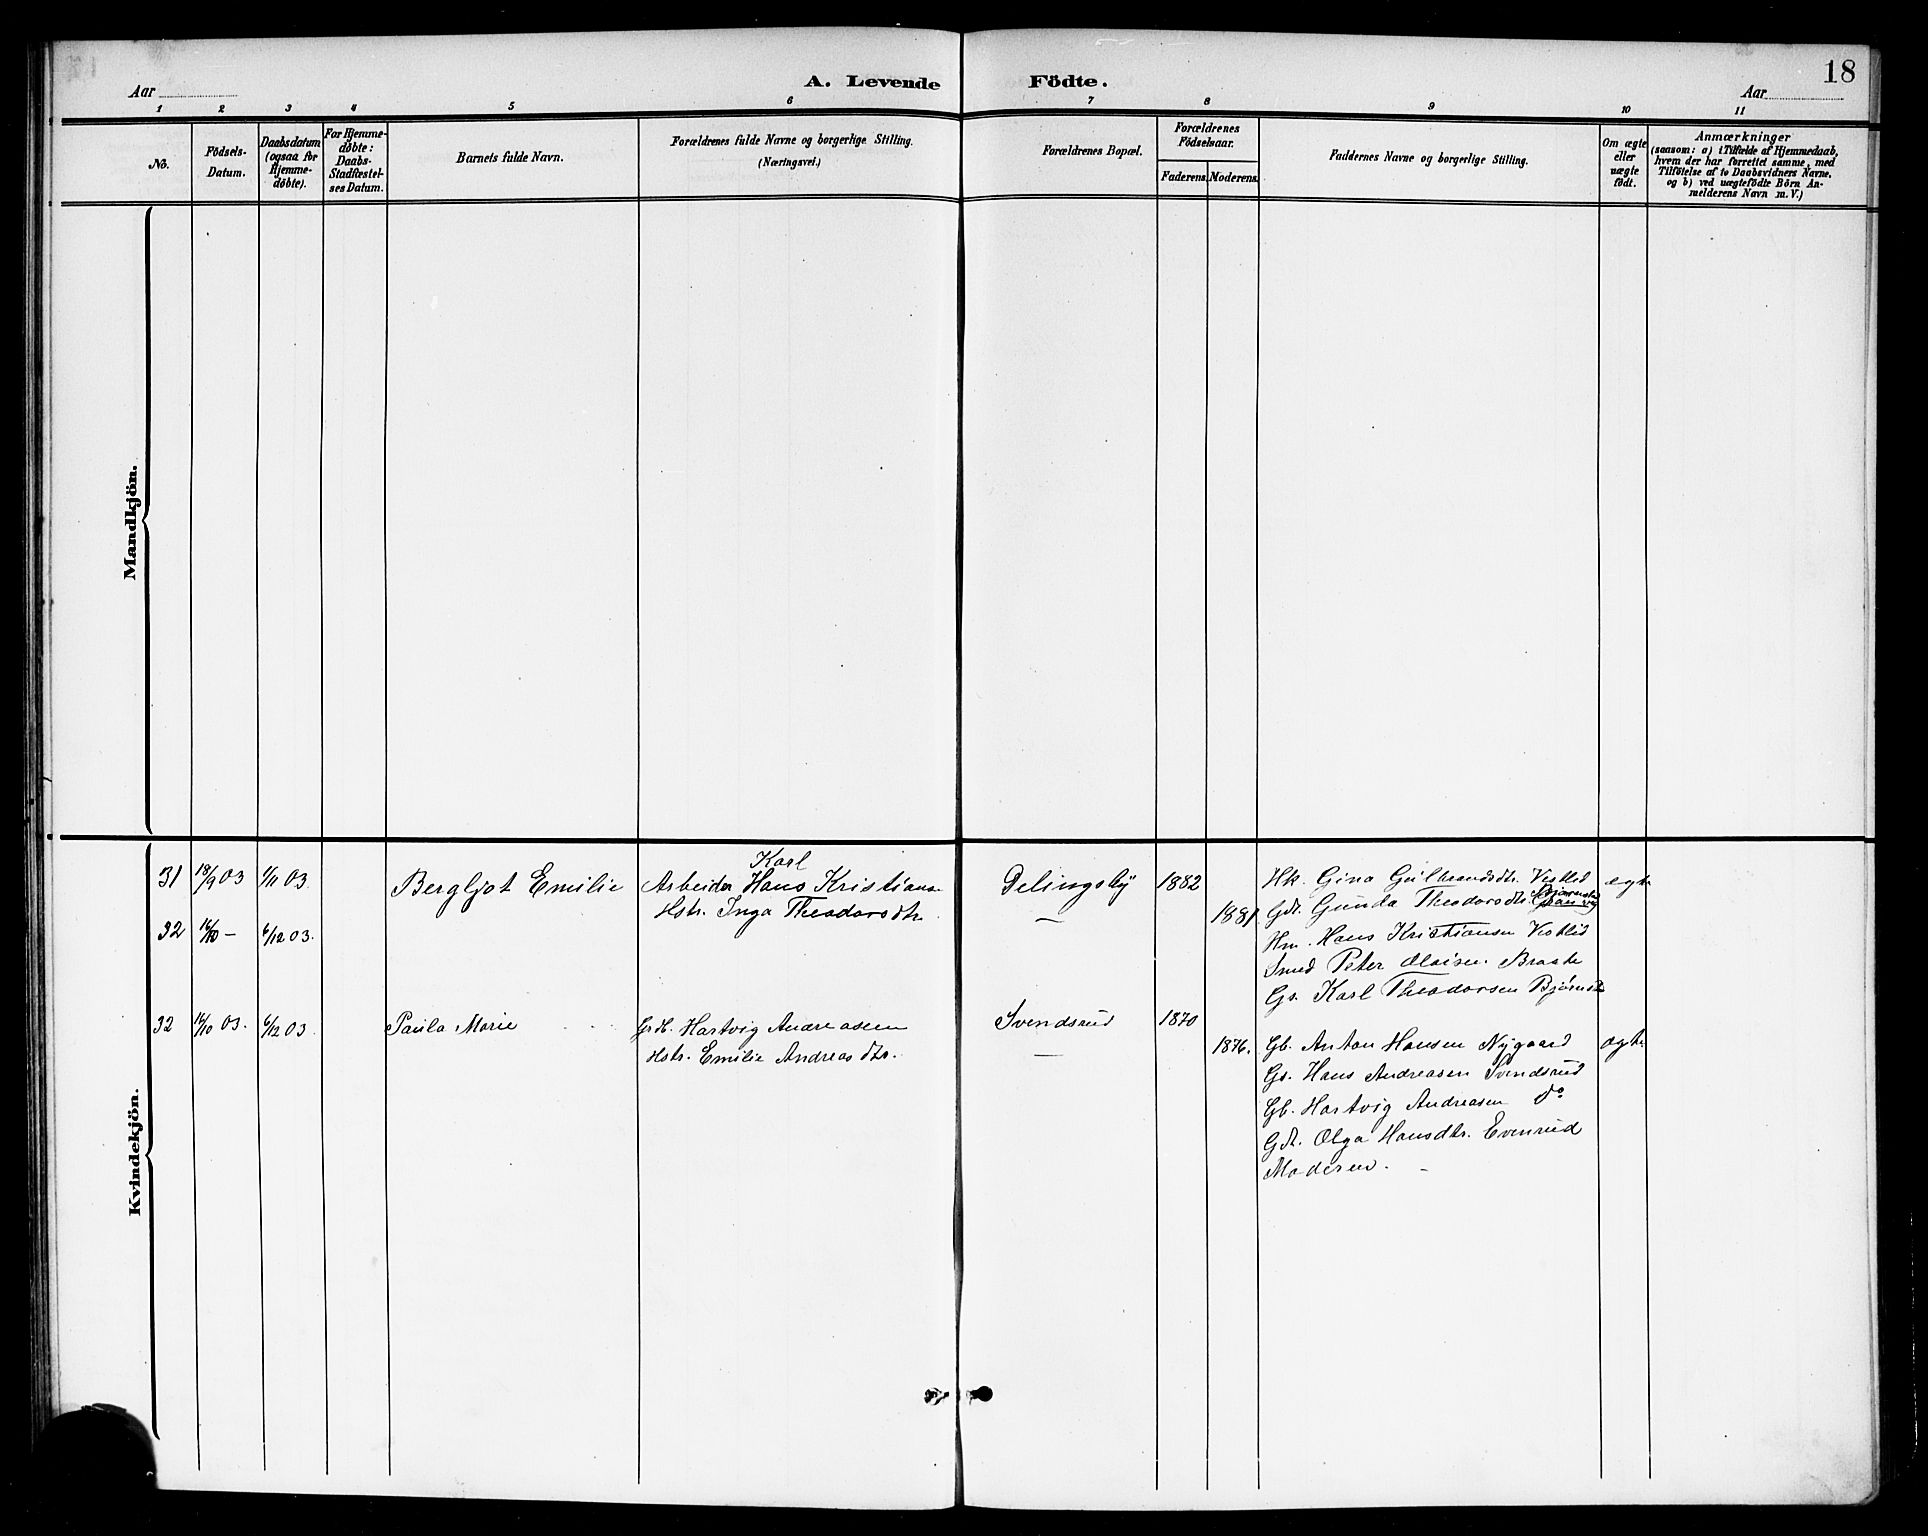 18
Aar
A. Levende Födte.
Aar
1 2 3 4 5 6 7 8 9 10 11
No.
Födsels-
Datum.
Daabsdatum
(ogsaa for
Hjemme-
døbte).
For Hjemme-
døbte:
Daabs-
Stadfæstel-
ses Datum.
Barnets fulde Navn.
Forældrenes fulde Navne og borgerlige Stilling.
(Næringsvei.)
Forældrenes Bopæl.
Forældrenes
Födselsaar.
Faderens. Moderens.
Faddernes Navne og borgerlige Stilling.
Om ægte
eller
uægte
født.
Anmærkninger
(saasom: a) i Tilfælde af Hjemmedaab,
hvem der har forrettet samme, med
Tilföielse af to Daabsvidners Navne,
og b) ved uægtefödte Börn An-
melderens Navn m.V.)
Mandkjön.
Kvindekjön.
31 18/9 03 1/11 03. Bergljot Emilie
Karl
Arbeider Hans Kristianse
Hstr. Inga Theodorsdtr.
Delingsby 1882
— 1881
Hk. Gina Gulbrandsdtr. Vestlid ægte
Gdt. Gunda Theodorsdtr.
Hm. Hans Kristiansen Vestlid
Smed Peter Olaisen Braate
Gs. Karl Theodorsen Bjørnst
32 16/10 — 6/12 03.
32 16/10 03. 6/12 03. Paula Marie
Grdb. Hartvig Andreasen
Hstr. Emilie Andreasdtr.
Svendsrud 1870
— 1876.
Gb. Anton Hansen Nygaard ægte
Gs. Hans Andreasen Svendsrud
Gb. Hartvig Andreasen do
Gdt. Olga Hansdtr. Evenrud
Moderen.